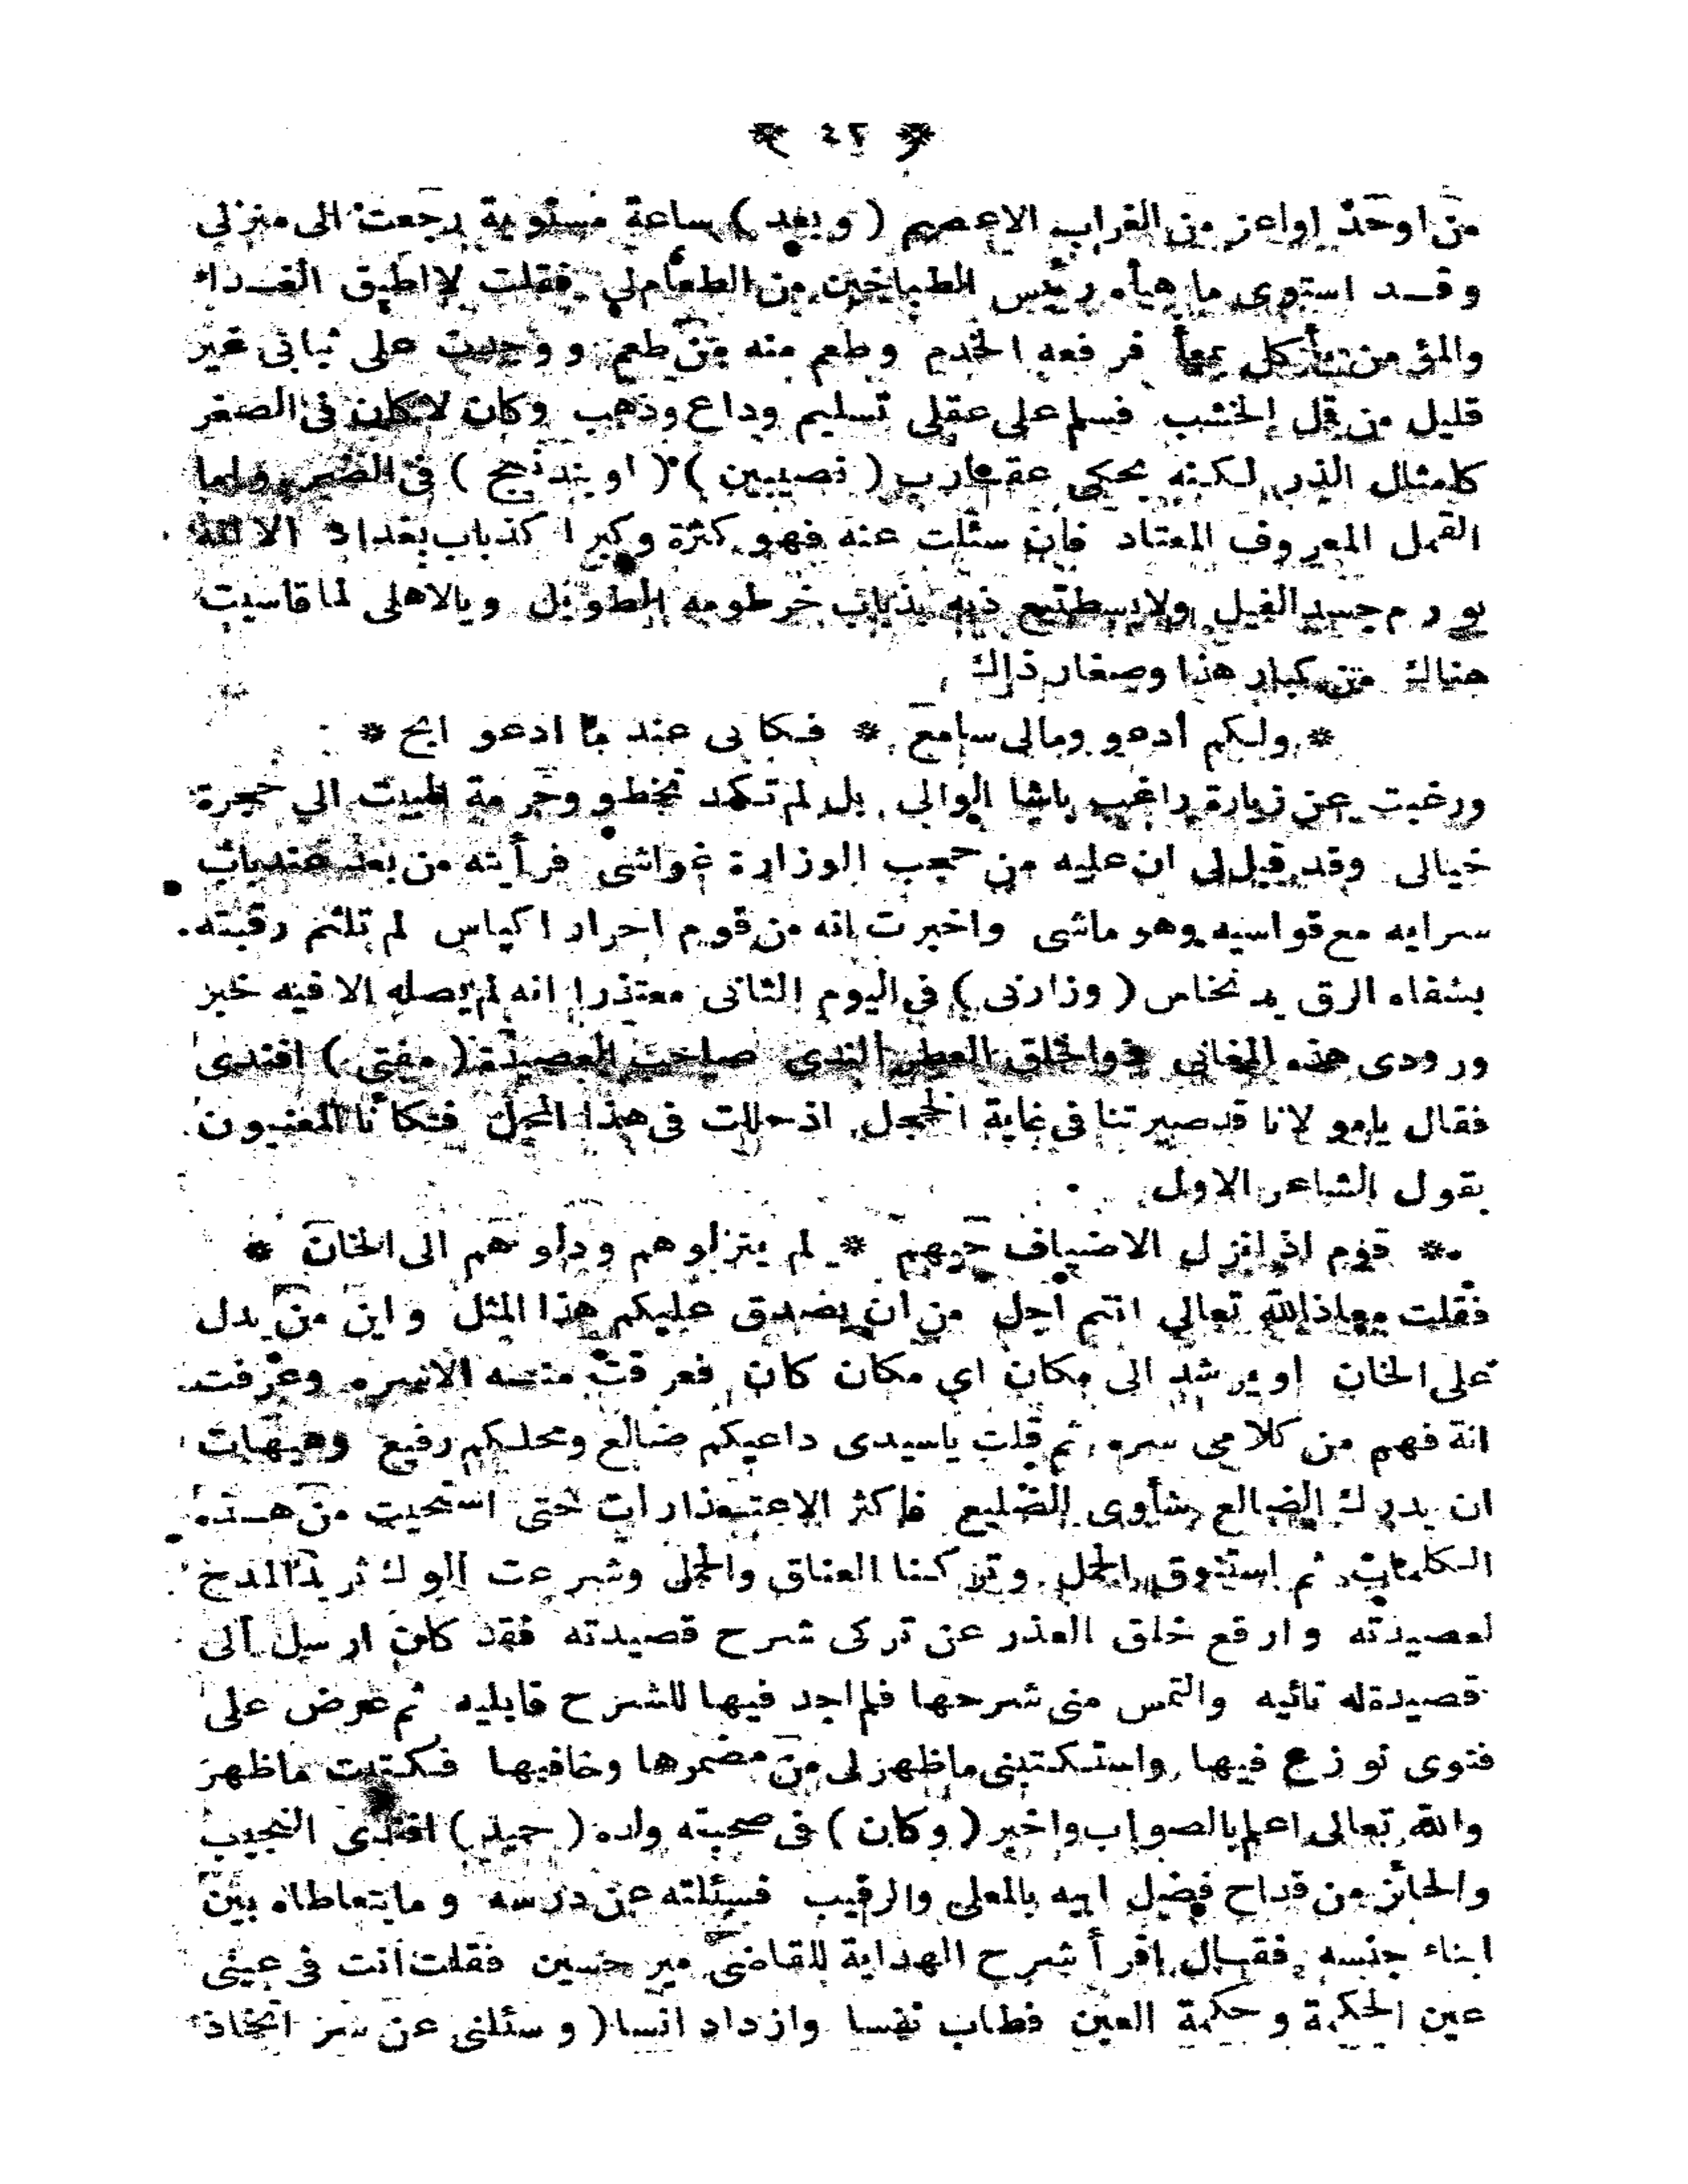 ﴿ ٤٢ ﴾
من اوحد او اعز من الغراب الاعصم ( وبعد ) ساعة مستوية رجعت الى منزلى
وقـد استوى ما هيأه رئيس الطباخين من الطعام لى فقلت لا اطيق الغـداء
والمؤمن يأكل بمعأ فرفعه الخدم وطعم منه من طعم ووجدت على ثيابى غير
قليل من قمل الخشب فسلم على عقلى تسليم وداع وذهب وكان لا كان فى الصغر
كامثال الذر لكنه يحكى عقارب ( نصيبين ) ( او بندنيج ) فى الضر واما
القمل المعروف المعتاد فان سئلت عنه فهو كثرة وكبرا كذباب بغداد الا انه
يورم جسد الفيل ولا يستطيع ذبه بذباب خرطومه الطويل ويالاهلى لما قاسيت
هناك من كبار هذا وصغار ذاك
* ولكم ادعو ومالى سامع * فكانى عند ما ادعو ابح *
ورغبت عن زيارة راغب باشا الوالى بل لم تكد تخطو وحرمة البيت الى حجرة
خيالى وقد قيل لى ان عليه من حجب الوزارة غواشى فرأيته من بعد عند باب
سرايه مع قواسيه وهو ماشى واخبرت انه من قوم احرار اكياس لم تلثم رقبته
بشفاه الرق يد نخاس ( وزارنى ) فى اليوم الثانى معتذرا انه لم يصله الا فيه خبر
ورودى هذه المغانى ذو الخلق العطر الندى صاحب العصيدة ( مفتى ) افندى
فقال يا مولانا قد صيرتنا فى غاية الخجل اذ حللت فى هذا المحل فكأنا المعنيون
بقول الشاعر الاول
* قوم اذا نزل الاضياف حيهم * لم ينزلوهم ودلوهم الى الخان *
فقلت معاذ الله تعالى انتم اجل من ان يصدق عليكم هذا المثل واين من يدل
على الخان او يرشد الى مكان اى مكان كان فعرقت منـه الاسره وعرفت
انه فهم من كلامى سره ثم قلت يا سيدى داعيكم ضالع ومحلكم رفيع وهيهات
ان يدرك الضالع شأوى الضليع فاكثر الاعتـذارات حتى استحيت من هـذه
الكلمات ثم استنوق الجمل وتركنا العناق والجمل وشرعت الوك ثريد المدح
لعصيدته وارقع خلق العذر عن تركى شرح قصيدته فقد كان ارسل الى
قصيدة له تائيه والتمس منى شرحها فلم اجد فيها للشرح قابليه ثم عرض على
فتوى نوزع فيها واستكتبنى ما ظهر لى من مضمرها وخافيها فكتبت ما ظهر
والله تعالى اعلم بالصواب واخبر ( وكان ) فى صحبته ولده ( حيد ) افندى النجيب
والحائز من قداح فضل ابيه بالمعلى والرقيب فسئلته عن درسه وما يتعاطاه بين
ابناء جنسه فقـال اقرأ شرح الهداية للقاضى مير حسين فقلت انت فى عينى
عين الحكمة وحكمة العين فطاب نفسا وازداد انسا ( وسئلنى عن سر اتخاذ